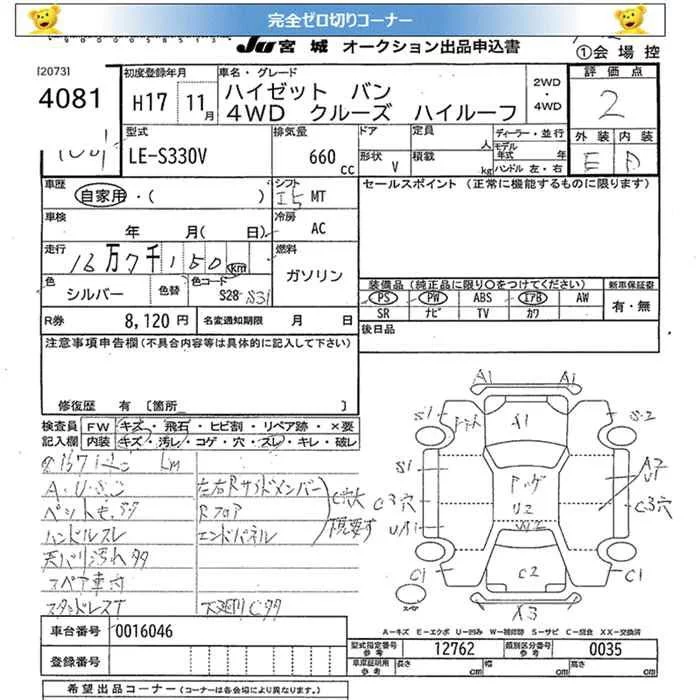 完全ゼロ切りコーナー
JU 宮城 オークション出品申込書
①会場控
[2073]
4081
初度登録年月
H17 11月
車名・グレード
ハイゼット バン
4WD クルーズ ハイルーフ
2WD
・
4WD
評価点
2
型式
LE-S330V
排気量
660 cc
ドア
形状 V
定員 人
積載 kg
ディーラー・並行
モデル年式 年
ハンドル 左・右
外装 内装
E D
車歴
自家用・( )
シフト
I5 MT
セールスポイント (正常に機能するものに限ります)
車検
年 月( 日)
冷房
AC
走行
16万7千150km
燃料
ガソリン
色
シルバー
色替
色コード
S28 S31
装備品(純正品に限り○をつけてください)
新車保証書
PS PW ABS エアB AW
有・無
SR ナビ TV カワ
R券 8,120円
名変通知期限 月 日
後日品
注意事項申告欄(不具合内容等は具体的に記入して下さい)
修復歴 有 [箇所 ]
検査員 FW キズ・飛石・ヒビ割・リペア跡・×要
記入欄 内装 キズ・汚レ・コゲ・穴・スレ・キレ・破レ
km
左右Rサイドメンバー
Rフロア
エンドパネル
C穴大
現要す
ハンドルスレ
天バリ汚れ多
スペア車内
スタッドレスT
下廻りC多
A1 A1
S1 A1 S2
S1 A2
U1
C3穴 U2 C3穴
UA1 W2
C1 C2 C1
A3
A-キズ E-エクボ U-凹み W-補修跡 S-サビ C-腐食 XX-交換済
車台番号 0016046
型式指定番号 参考 12762
類別区分番号 参考 0035
登録番号
車庫証明用 参考 長さ cm 幅 cm 高さ cm
希望出品コーナー (コーナーは各会場により異なります。)